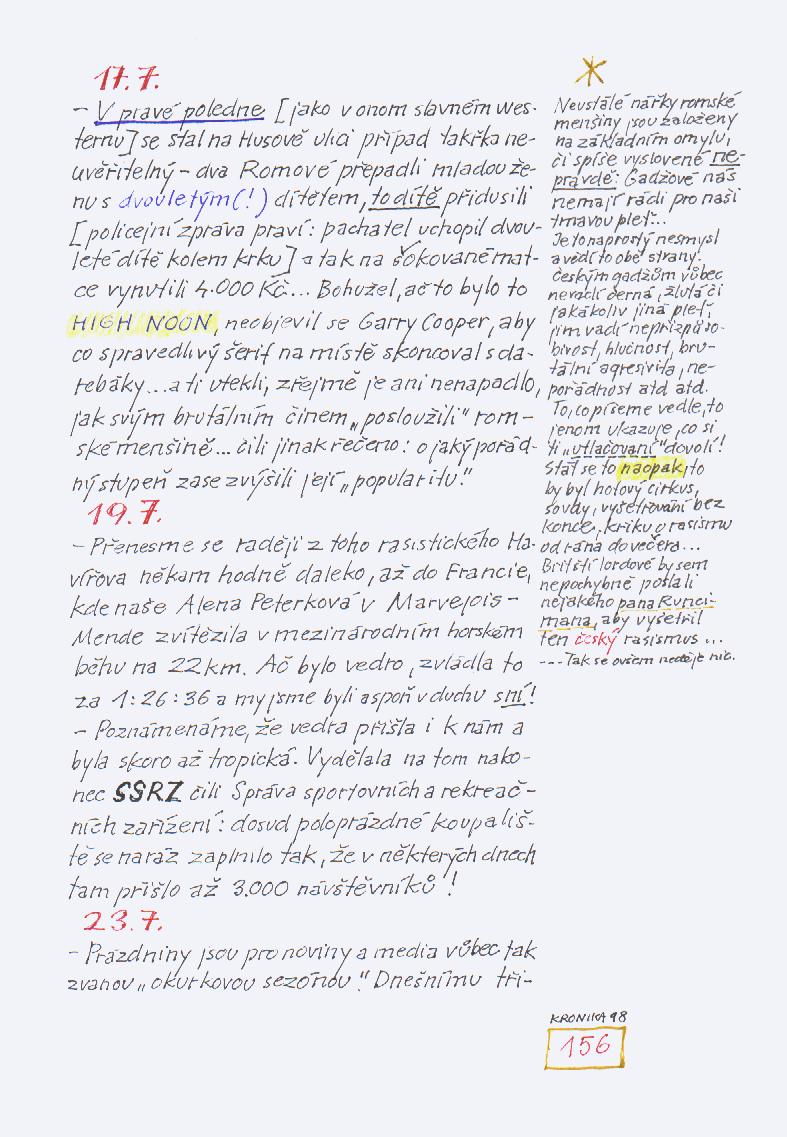 17.7.
- V pravé poledne [jako v onom slavném wes-
ternu] se stal na Husově ulici případ takřka ne-
uvěřitelný - dva Romové přepadli mladou že-
nu s dvouletým (!) dítětem, to dítě přidusili
[policejní zpráva praví: pachatel uchopil dvou-
leté dítě kolem krku] a tak na šokované mat-
ce vynutili 4.000 Kč... Bohužel, ač to bylo to
HIGH NOON, neobjevil se Garry Cooper, aby
co spravedlivý šerif na místě skoncoval s da-
rebáky...a ti utekli, zřejmě je ani nenapadlo,
jak svým brutálním činem „posloužili" rom-
ské menšině... čili jinak řečeno: o jaký pořád-
ný stupeň zase zvýšili její „popularitu."
19.7.
- Přenesme se raději z toho rasistického Ha-
vířova někam hodně daleko, až do Francie,
kde naše Alena Peterková v Marvejols -
Mende zvítězila v mezinárodním horském
běhu na 22 km. Ač bylo vedro, zvládla to
za 1:26:36 a my jsme byli aspoň v duchu s ní!
- Poznamenáme, že vedra přišla i k nám a
byla skoro až tropická. Vydělala na tom nako-
nec SSRZ čili Správa sportovních a rekreač-
ních zařízení: dosud poloprázdné koupališ-
tě se naráz zaplnilo tak, že v některých dnech
tam přišlo až 3.000 návštěvníků!
23.7.
- Prázdniny jsou pro noviny a media vůbec tak
zvanou „okurkovou sezónou." Dnešnímu tři-
Neustálé nářky romské
menšiny jsou založeny
na základním omylu,
či spíše vyslovené ne-
pravdě: Gadžové nás
nemají rádi pro naši
tmavou pleť...
Je to naprostý nesmysl
a vědí to obě strany.
Českým gadžům vůbec
nevadí černá, žlutá či
jakákoliv jiná pleť,
jim vadí nepřizpůso-
bivost, hlučnost, bru-
tální agresivita, ne-
pořádnost atd atd.
To, co píšeme vedle, to
jenom ukazuje, co si
ti „utlačovaní" dovolí!
Stát se to naopak, to
by byl hotový cirkus,
soudy, vyšetřování bez
konce, křiku o rasismu
od rána do večera...
Britští lordové by sem
nepochybně poslali
nějakého pana Runci-
mana, aby vyšetřil
ten český rasismus ...
--- Tak se ovšem neděje nic.
KRONIKA 98
156